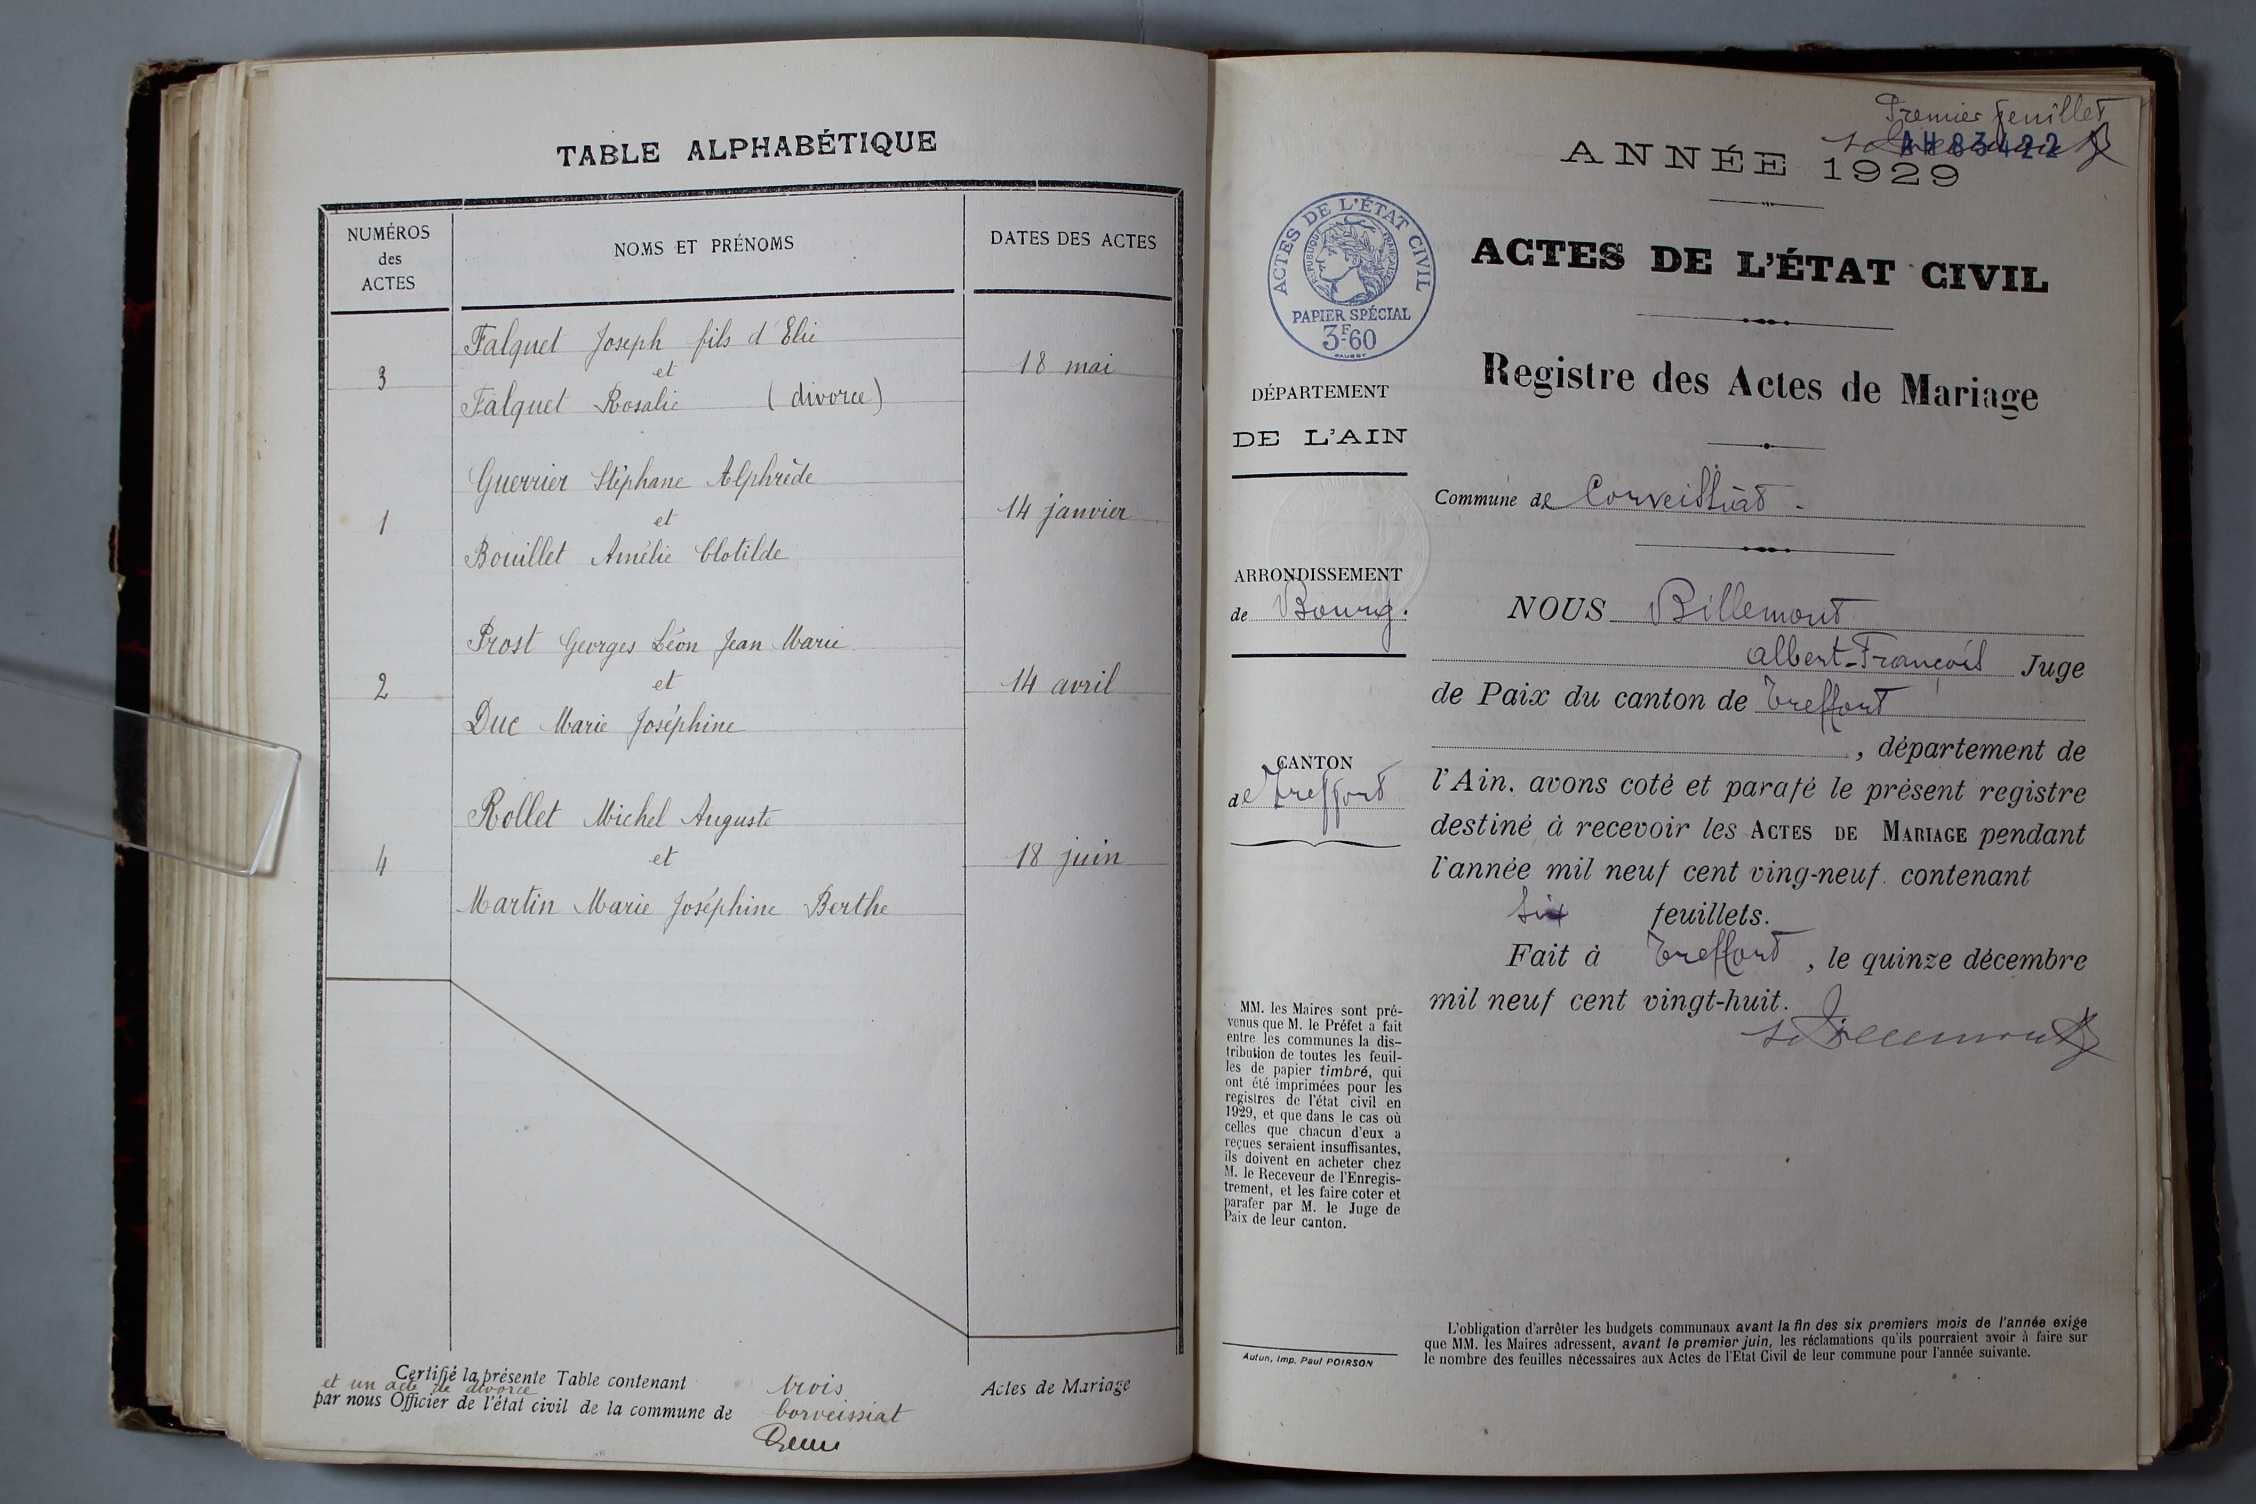 TABLE ALPHABÉTIQUE
NUMÉROS
des
ACTES
NOMS ET PRÉNOMS
DATES DES ACTES
Falquet Joseph fils d'Elie
3
et
18 mai
Falquet Rosalie (divorce)
Guerrier Stéphane Alphrède
1
et
14 janvier
Bouillet Amélie Clotilde
Prost Georges Léon Jean Marie
2
et
14 avril
Duc Marie Joséphine
Rollet Michel Auguste
4
et
18 juin
Martin Marie Joséphine Berthe
Certifié la présente Table contenant trois Actes de Mariage
et un acte de divorce
par nous Officier de l'état civil de la commune de Corveissiat
Premier feuillet
AH 83422
ANNÉE 1929
ACTES DE L'ÉTAT CIVIL
RÉPUBLIQUE FRANÇAISE
PAPIER SPÉCIAL
3F60
ACTES DE L'ÉTAT CIVIL
Registre des Actes de Mariage
DÉPARTEMENT
DE L'AIN
Commune de Corveissiat.
ARRONDISSEMENT
de Bourg.
CANTON
de Treffort
NOUS Billemont
Albert-François Juge
de Paix du canton de Treffort
, département de
l'Ain, avons coté et parafé le présent registre
destiné à recevoir les ACTES DE MARIAGE pendant
l'année mil neuf cent ving-neuf. contenant
six feuillets.
Fait à Treffort, le quinze décembre
mil neuf cent vingt-huit.
MM. les Maires sont pré-
venus que M. le Préfet a fait
entre les communes la dis-
tribution de toutes les feuil-
les de papier timbré, qui
ont été imprimées pour les
registres de l'état civil en
1929, et que dans le cas où
celles que chacun d'eux a
reçues seraient insuffisantes,
ils doivent en acheter chez
M. le Receveur de l'Enregis-
trement, et les faire coter et
parafer par M. le Juge de
Paix de leur canton.
Autun, Imp. Paul POIRSON
L'obligation d'arrêter les budgets communaux avant la fin des six premiers mois de l'année exige
que MM. les Maires adressent, avant le premier juin, les réclamations qu'ils pourraient avoir à faire sur
le nombre des feuilles nécessaires aux Actes de l'Etat Civil de leur commune pour l'année suivante.